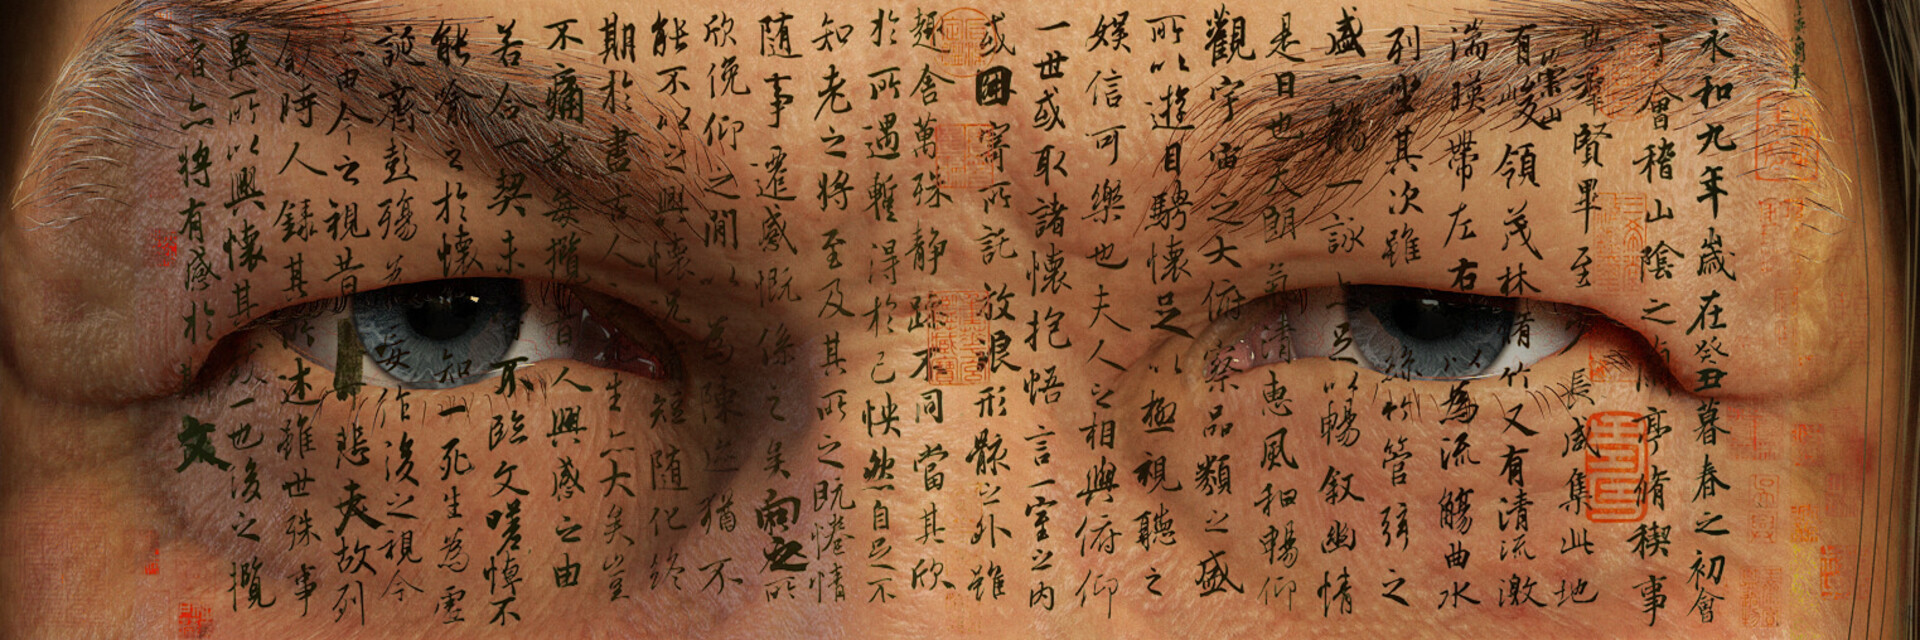 永和九年歲在癸丑暮春之初會
于會稽山陰之蘭亭脩稧事
也群賢畢至長咸集此地
有崇山峻領茂林脩竹又有清流激
湍暎帶左右以為流觴曲水
列坐其次雖絲竹管弦之
盛一觴一詠亦足以暢敘幽情
是日也天朗氣清惠風和暢仰
觀宇宙之大俯察品類之盛
所以遊目騁懷足以極視聽之
娛信可樂也夫人之相與俯仰
一世或取諸懷抱悟言一室之內
或因寄所託放浪形骸之外雖
趣舍萬殊靜躁不同當其欣
於所遇暫得於己怏然自足不
知老之將至及其所之既惓情
隨事遷感慨係之矣向之所
欣俛仰之閒以為陳迹猶不
能不以之興懷況短隨化終
期於盡古人生亦大矣豈
不痛哉每攬昔人興感之由
若合一契未不臨文嗟悼不
能喻之於懷知一死生為虛
誕齊彭殤為妄作後之視今
亦由今之視昔悲夫故列
敘時人錄其所述雖世殊事
異所以興懷其致一也後之攬
者亦將有感於斯文